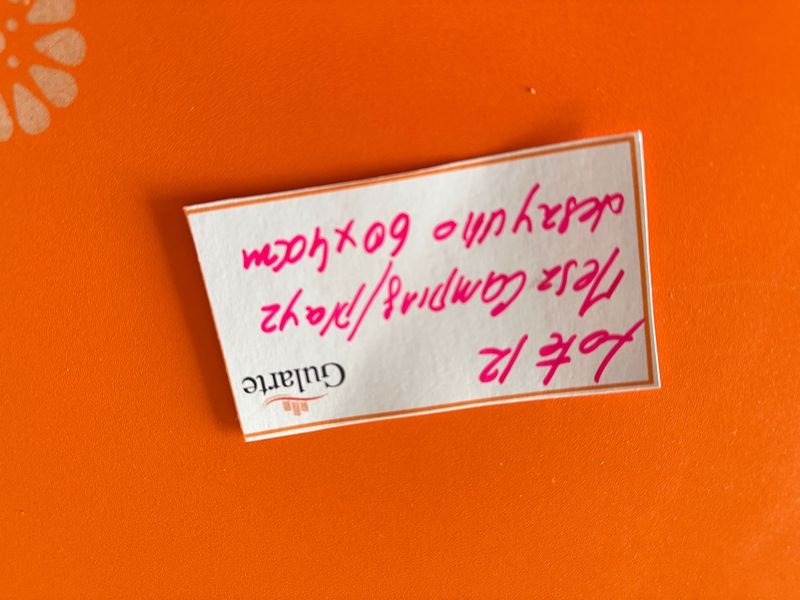 Gularte
Lote 12
Mesa Camping/playa
desayuno 60x40cm